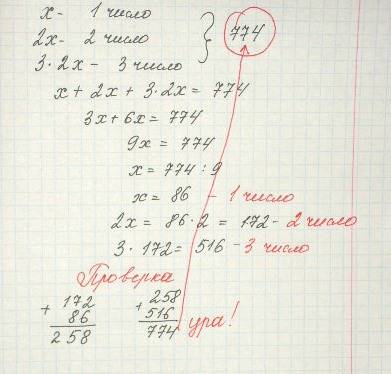 x - 1 число
2x - 2 число
3·2x - 3 число
} 774
x + 2x + 3·2x = 774
3x + 6x = 774
9x = 774
x = 774 : 9
x = 86 - 1 число
2x = 86·2 = 172 - 2 число
3·172 = 516 - 3 число
Проверка
+ 172 + 258
86 516
258 774 ура!